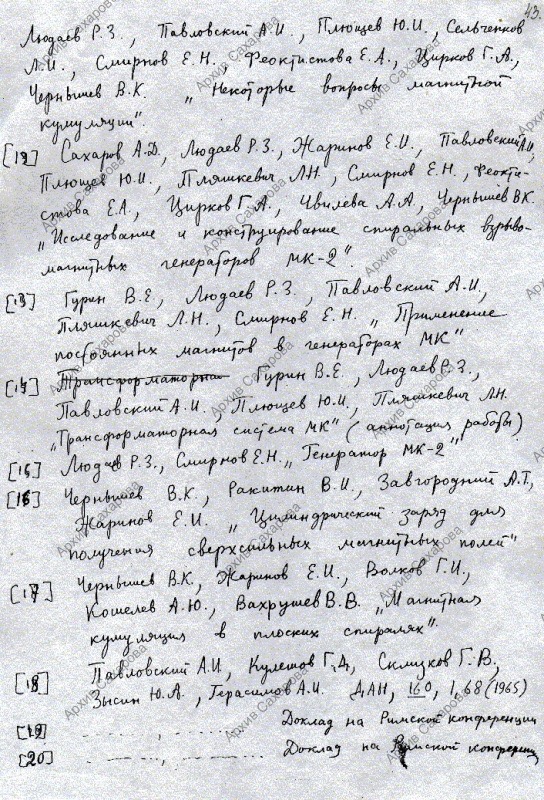 43.
Людаев Р.З., Павловский А.И., Плющев Ю.И., Сельченков
Л.И., Смирнов Е.Н., Феоктистова Е.А., Цирков Г.А.,
Чернышев В.К. „Некоторые вопросы магнитной
кумуляции".
[12] Сахаров А.Д., Людаев Р.З., Жаринов Е.И., Павловский А.И,
Плющев Ю.И., Пляшкевич Л.Н., Смирнов Е.Н., Феокти-
стова Е.А., Цирков Г.А., Чвилева А.А., Чернышев В.К.
„Исследование и конструирование спиральных взрыво-
магнитных генераторов МК-2".
[13] Гурин В.Е., Людаев Р.З., Павловский А.И.,
Пляшкевич Л.Н., Смирнов Е.Н. „Применение
постоянных магнитов в генераторах МК"
[14] Трансформаторная Гурин В.Е., Людаев Р.З.,
Павловский А.И., Плющев Ю.И., Пляшкевич Л.Н.
„Трансформаторная система МК" (аннотация работы)
[15] Людаев Р.З., Смирнов Е.Н. „Генератор МК-2"
[16] Чернышев В.К., Ракитин В.И., Завгородний А.Т.,
Жаринов Е.И. „Цилиндрический заряд для
получения сверхсильных магнитных полей"
[17] Чернышев В.К., Жаринов Е.И., Волков Г.И.,
Кошелев А.Ю., Вахрушев В.В. „Магнитная
кумуляция в плоских спиралях".
[18] Павловский А.И., Кулешов Г.Д., Склизков Г.В.,
Зысин Ю.А., Герасимов А.И. ДАН, 160, 1, 68 (1965)
[19] ........, ........ Доклад на Римской конференции
[20] ........, ........ Доклад на Римской конференц
Архив Сахарова